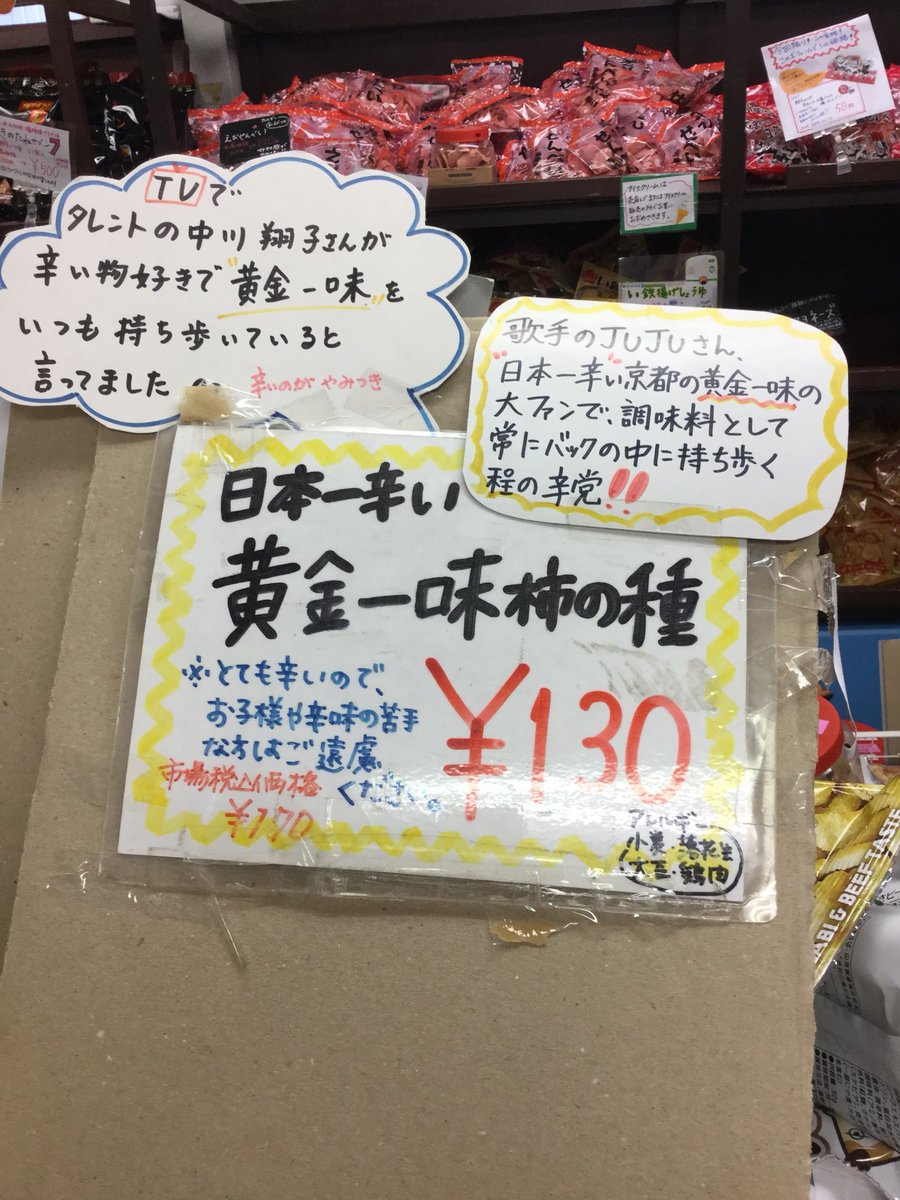 TVで
タレントの中川翔子さんが
辛い物好きで"黄金一味"を
いつも持ち歩いていると
言ってました
辛いのがやみつき
歌手のJUJUさん、
"日本一辛い京都の黄金一味の
大ファンで、調味料として
常にバックの中に持ち歩く
程の辛党!!
日本一辛い
黄金一味柿の種
※とても辛いので、
お子様や辛味の苦手
な方はご遠慮
ください。
¥130
市場税込価格
¥170
アレルギー
小麦・落花生
大豆・鶏肉
えびせんべい
アイスクリームは
い鉄揚げしょうゆ
50円
& BEEF TASTE